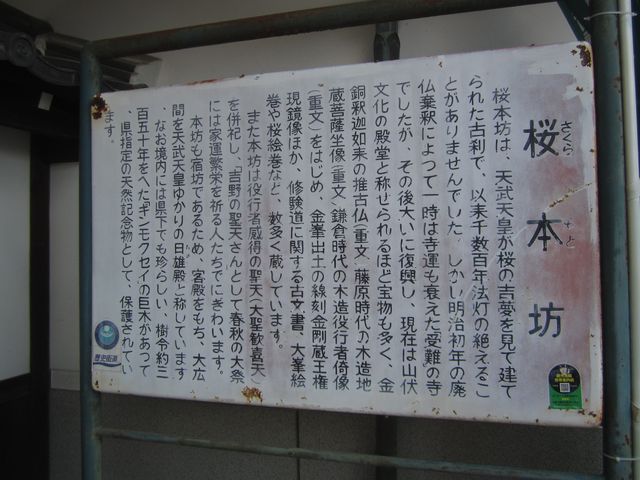 桜本坊
さくら
もと
桜本坊は、天武天皇が桜の吉夢を見て建て
られた古刹で、以来千数百年法灯の絶えるこ
とがありませんでした。しかし明治初年の廃
仏棄釈によって一時は寺運も衰えた受難の寺
でしたが、その後大いに復興し、現在は山伏
文化の殿堂と称せられるほど宝物も多く、金
銅釈迦如来の推古仏(重文)藤原時代の木造地
蔵菩薩坐像(重文)鎌倉時代の木造役行者倚像
(重文)をはじめ、金峯出土の線刻金剛蔵王権
現鏡像ほか、修験道に関する古文書、大峯絵
巻や桜絵巻など、数多く蔵しています。
また本坊は役行者感得の聖天(大聖歓喜天)
を併祀し、吉野の聖天さんとして春秋の大祭
には家運繁栄を祈る人たちでにぎわいます。
本坊も宿坊であるため、客殿をもち、大広
間を天武天皇ゆかりの日雄殿と称しています
、なお境内には県下でも珍らしい、樹令約三
百五十年をへたギンモクセイの巨木があって
、県指定の天然記念物として、保護されてい
ます。
歴史街道